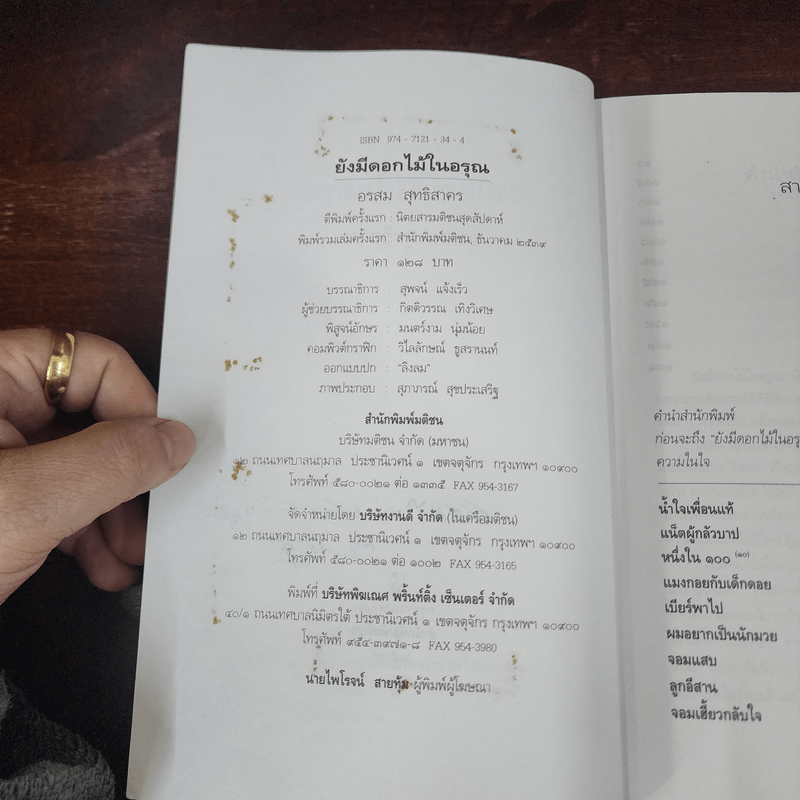 ISBN 974 - 7121 - 34 - 4
ยังมีดอกไม้ในอรุณ
อรสม สุทธิสาคร
ตีพิมพ์ครั้งแรก : นิตยสารมติชนสุดสัปดาห์
พิมพ์รวมเล่มครั้งแรก : สำนักพิมพ์มติชน, ธันวาคม ๒๕๓๙
ราคา ๑๒๘ บาท
บรรณาธิการ : สุพจน์ แจ้งเร็ว
ผู้ช่วยบรรณาธิการ : กิตติวรรณ เทิงวิเศษ
พิสูจน์อักษร : มนตร์งาม นุ่มน้อย
คอมพิวต์กราฟิก : วิไลลักษณ์ ธูสรานนท์
ออกแบบปก : "ลิงลม"
ภาพประกอบ : สุภาภรณ์ สุขประเสริฐ
สำนักพิมพ์มติชน
บริษัทมติชน จำกัด (มหาชน)
๑๒ ถนนเทศบาลนฤมาล ประชานิเวศน์ ๑ เขตจตุจักร กรุงเทพฯ ๑๐๙๐๐
โทรศัพท์ ๕๘๐-๐๐๒๑ ต่อ ๑๓๓๕ FAX 954-3167
จัดจำหน่ายโดย บริษัทงานดี จำกัด (ในเครือมติชน)
๑๒ ถนนเทศบาลนฤมาล ประชานิเวศน์ ๑ เขตจตุจักร กรุงเทพฯ ๑๐๙๐๐
โทรศัพท์ ๕๘๐-๐๐๒๑ ต่อ ๑๐๐๒ FAX 954-3165
พิมพ์ที่ บริษัทพิฆเณศ พริ้นท์ติ้ง เซ็นเตอร์ จำกัด
๔๐/๑ ถนนเทศบาลนิมิตรใต้ ประชานิเวศน์ ๑ เขตจตุจักร กรุงเทพฯ ๑๐๙๐๐
โทรศัพท์ ๙๕๔-๓๙๗๑-๘ FAX 954-3980
นายไพโรจน์ สายทุ้ม ผู้พิมพ์ผู้โฆษณา
สา
คำนำสำนักพิมพ์
ก่อนจะถึง "ยังมีดอกไม้ในอรุ
ความในใจ
น้ำใจเพื่อนแท้
แน็ตผู้กลัวบาป
หนึ่งใน ๑๐๐ (๑๐)
แมงกอยกับเด็กดอย
เบียร์พาไป
ผมอยากเป็นนักมวย
จอมแสบ
ลูกอีสาน
จอมเฮี้ยวกลับใจ